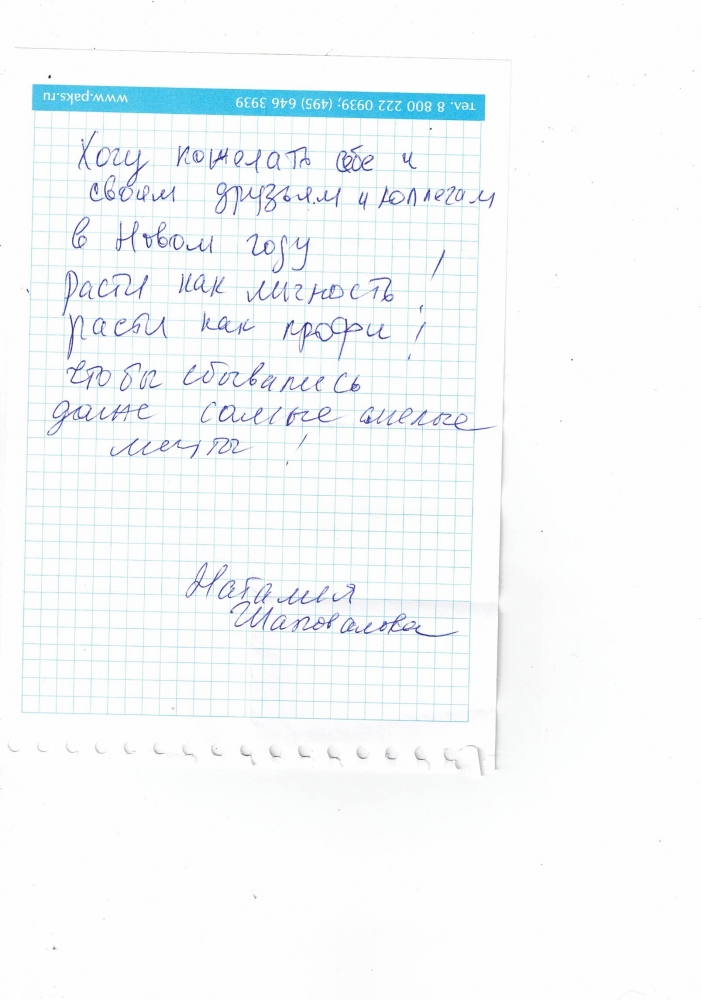 тел. 8 800 222 0939; (495) 646 3939 www.paks.ru
Хочу пожелать себе и
своим друзьям и коллегам
в Новом году
Расти как личность!
расти как профи!
Чтобы сбывались
даже самые смелые
мечты!
Наталия
Шаповалова